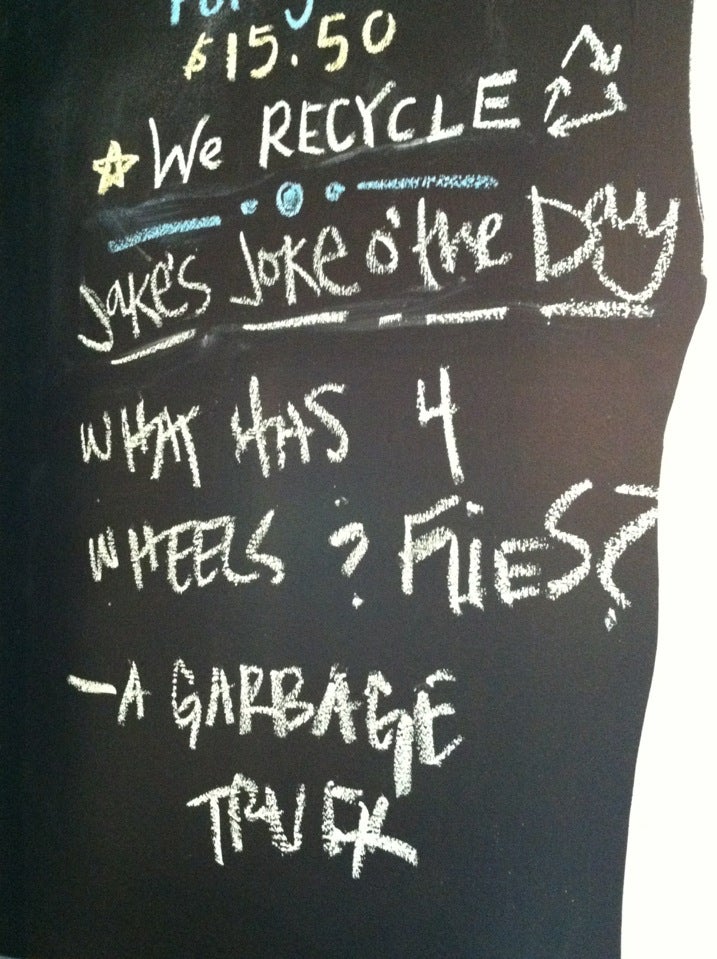 $15.50
We RECYCLE
Jake's Joke o' the Day
WHAT HAS 4
WHEELS ? FLIES?
- A GARBAGE
TRUCK